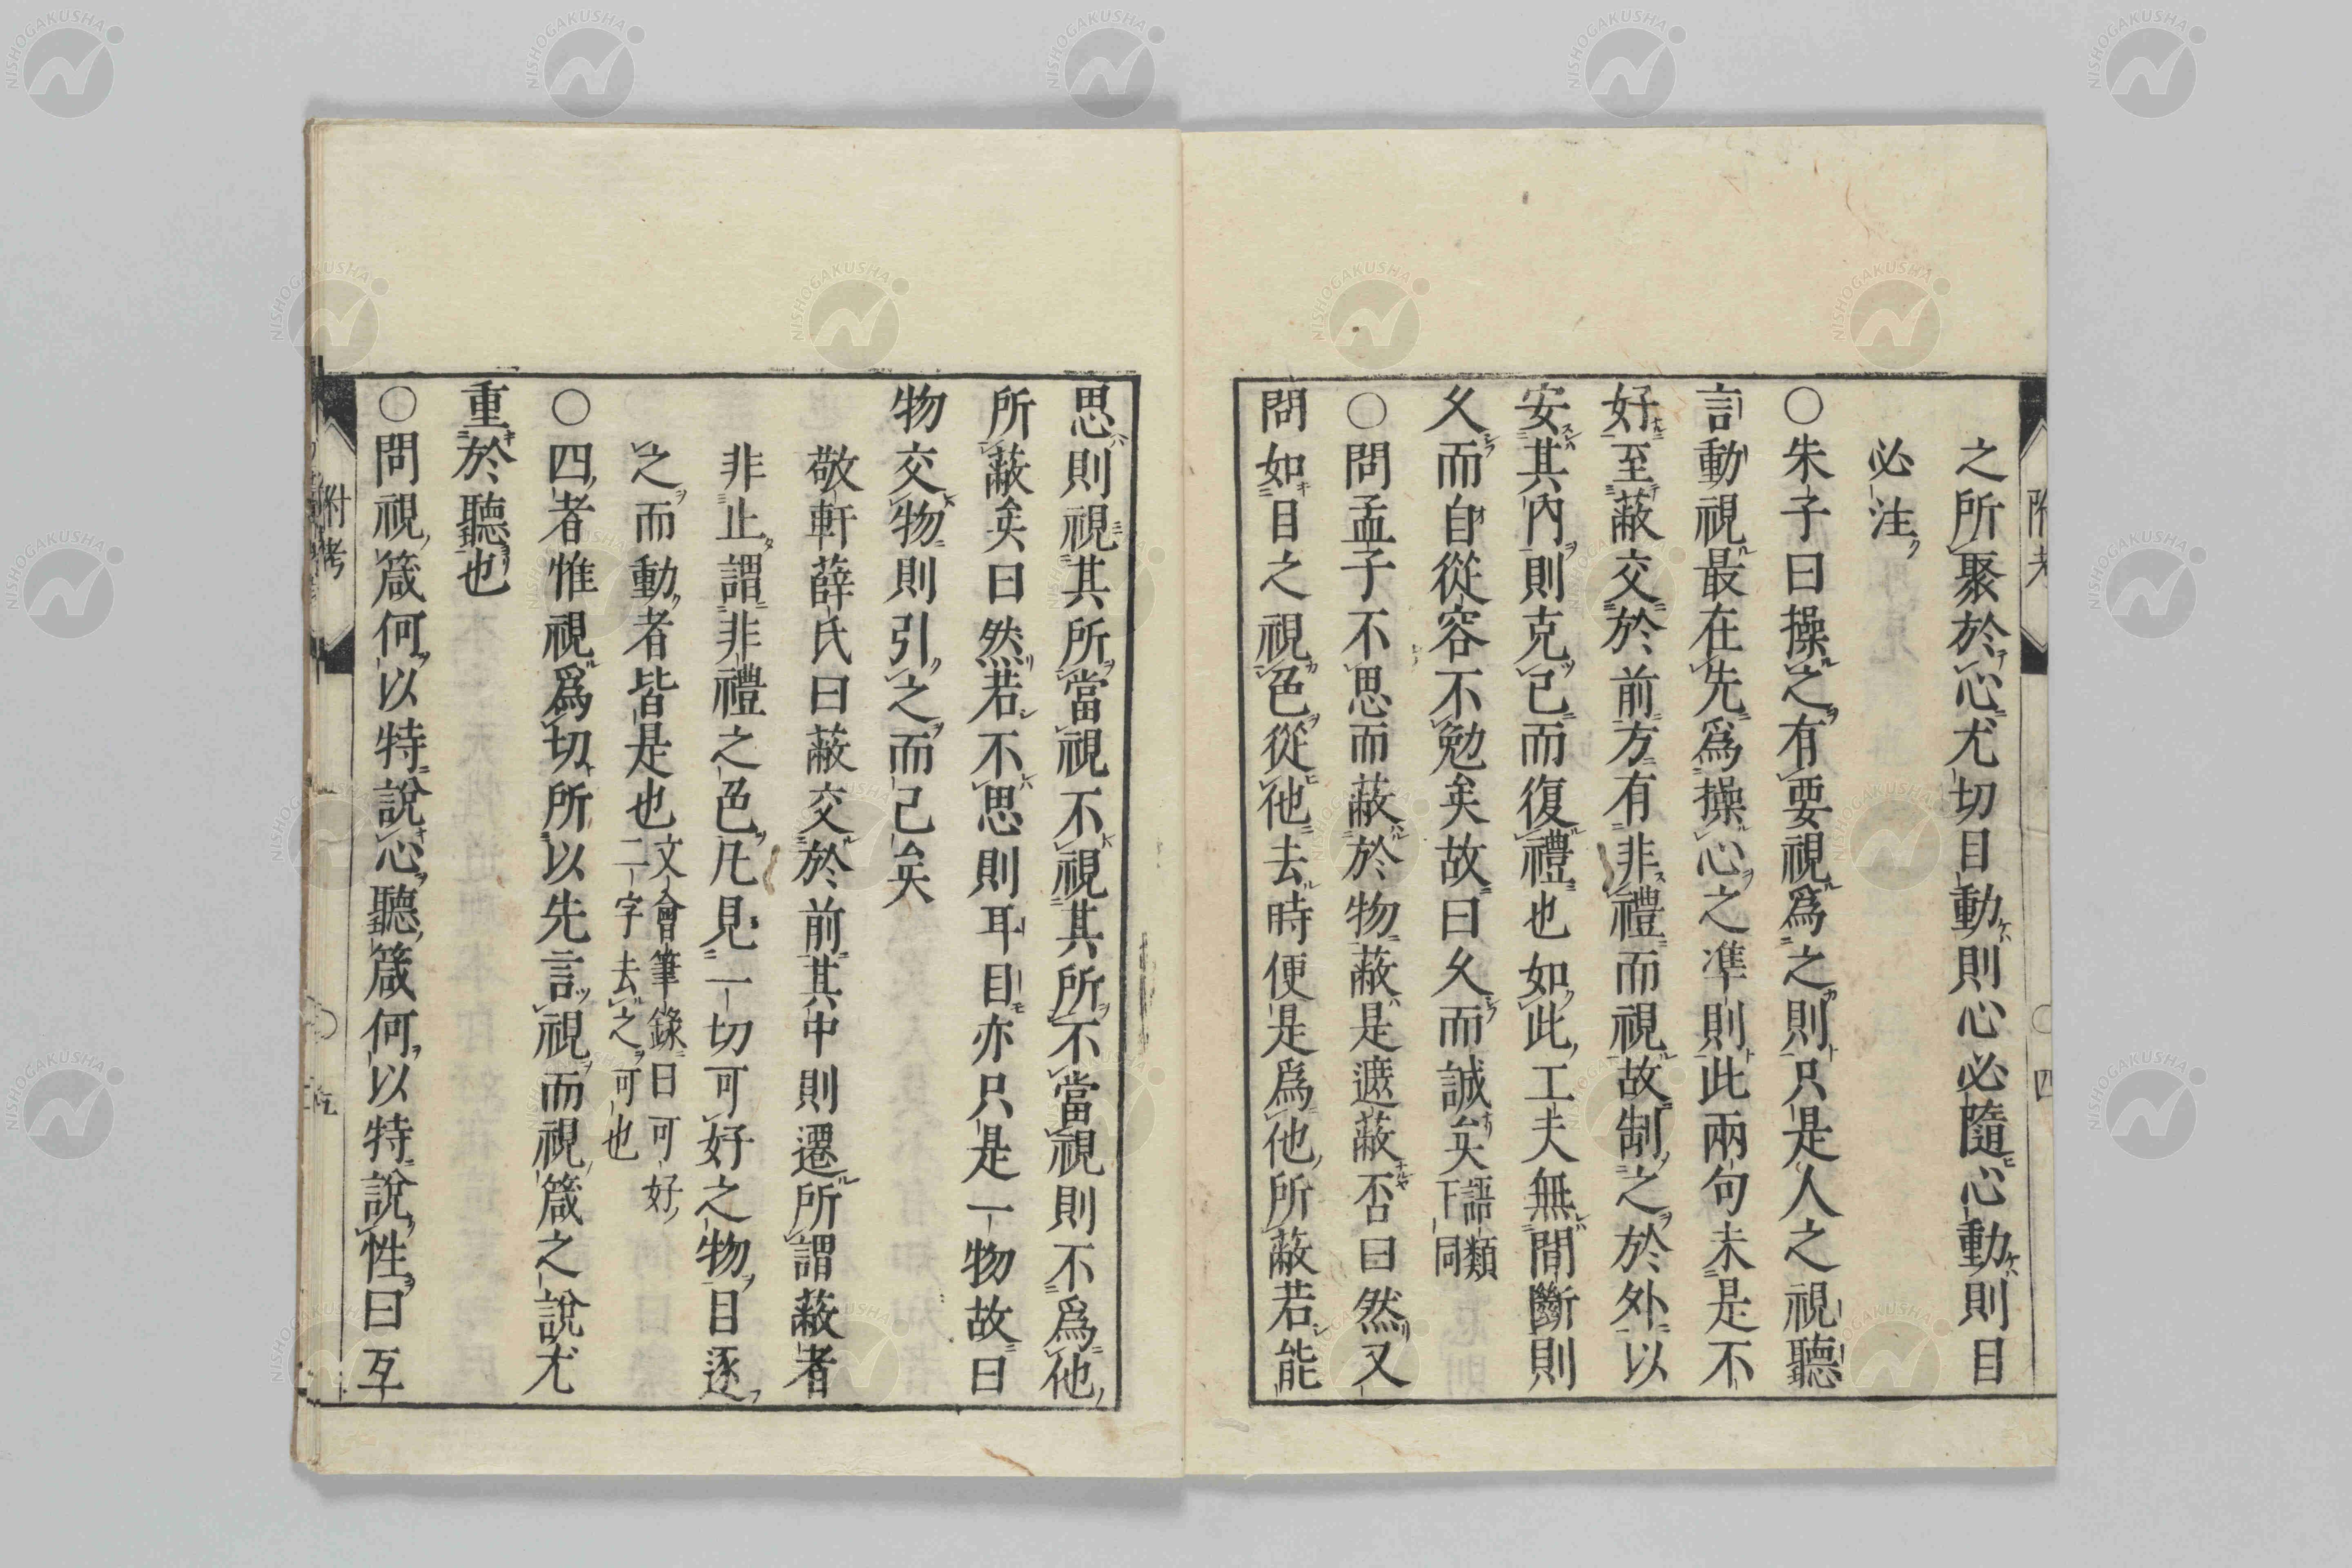 之所聚於心尤切目動則心必隨心動則目
必注
○朱子曰操之有要視爲之則只是人之視聽
言動視最在先爲操心之準則此兩句未是不
好至蔽交於前方有非禮而視故制之於外以
安其內則克己而復禮也如此工夫無間斷則
久而自從容不勉矣故曰久而誠矣語類下同
○問孟子不思而蔽於物蔽是遮蔽否曰然又
問如目之視色從他去時便是爲他所蔽若能
思則視其所當視不視其所不當視則不爲他
所蔽矣曰然若不思則耳目亦只是一物故曰
物交物則引之而已矣
敬軒薛氏曰蔽交於前其中則遷所謂蔽者
非止謂非禮之色凡見一切可好之物目逐
之而動者皆是也文會筆錄曰可好二字去之可也
○四者惟視爲切所以先言視而視箴之說尤
重於聽也
○問視箴何以特說心聽箴何以特說性曰互
附考